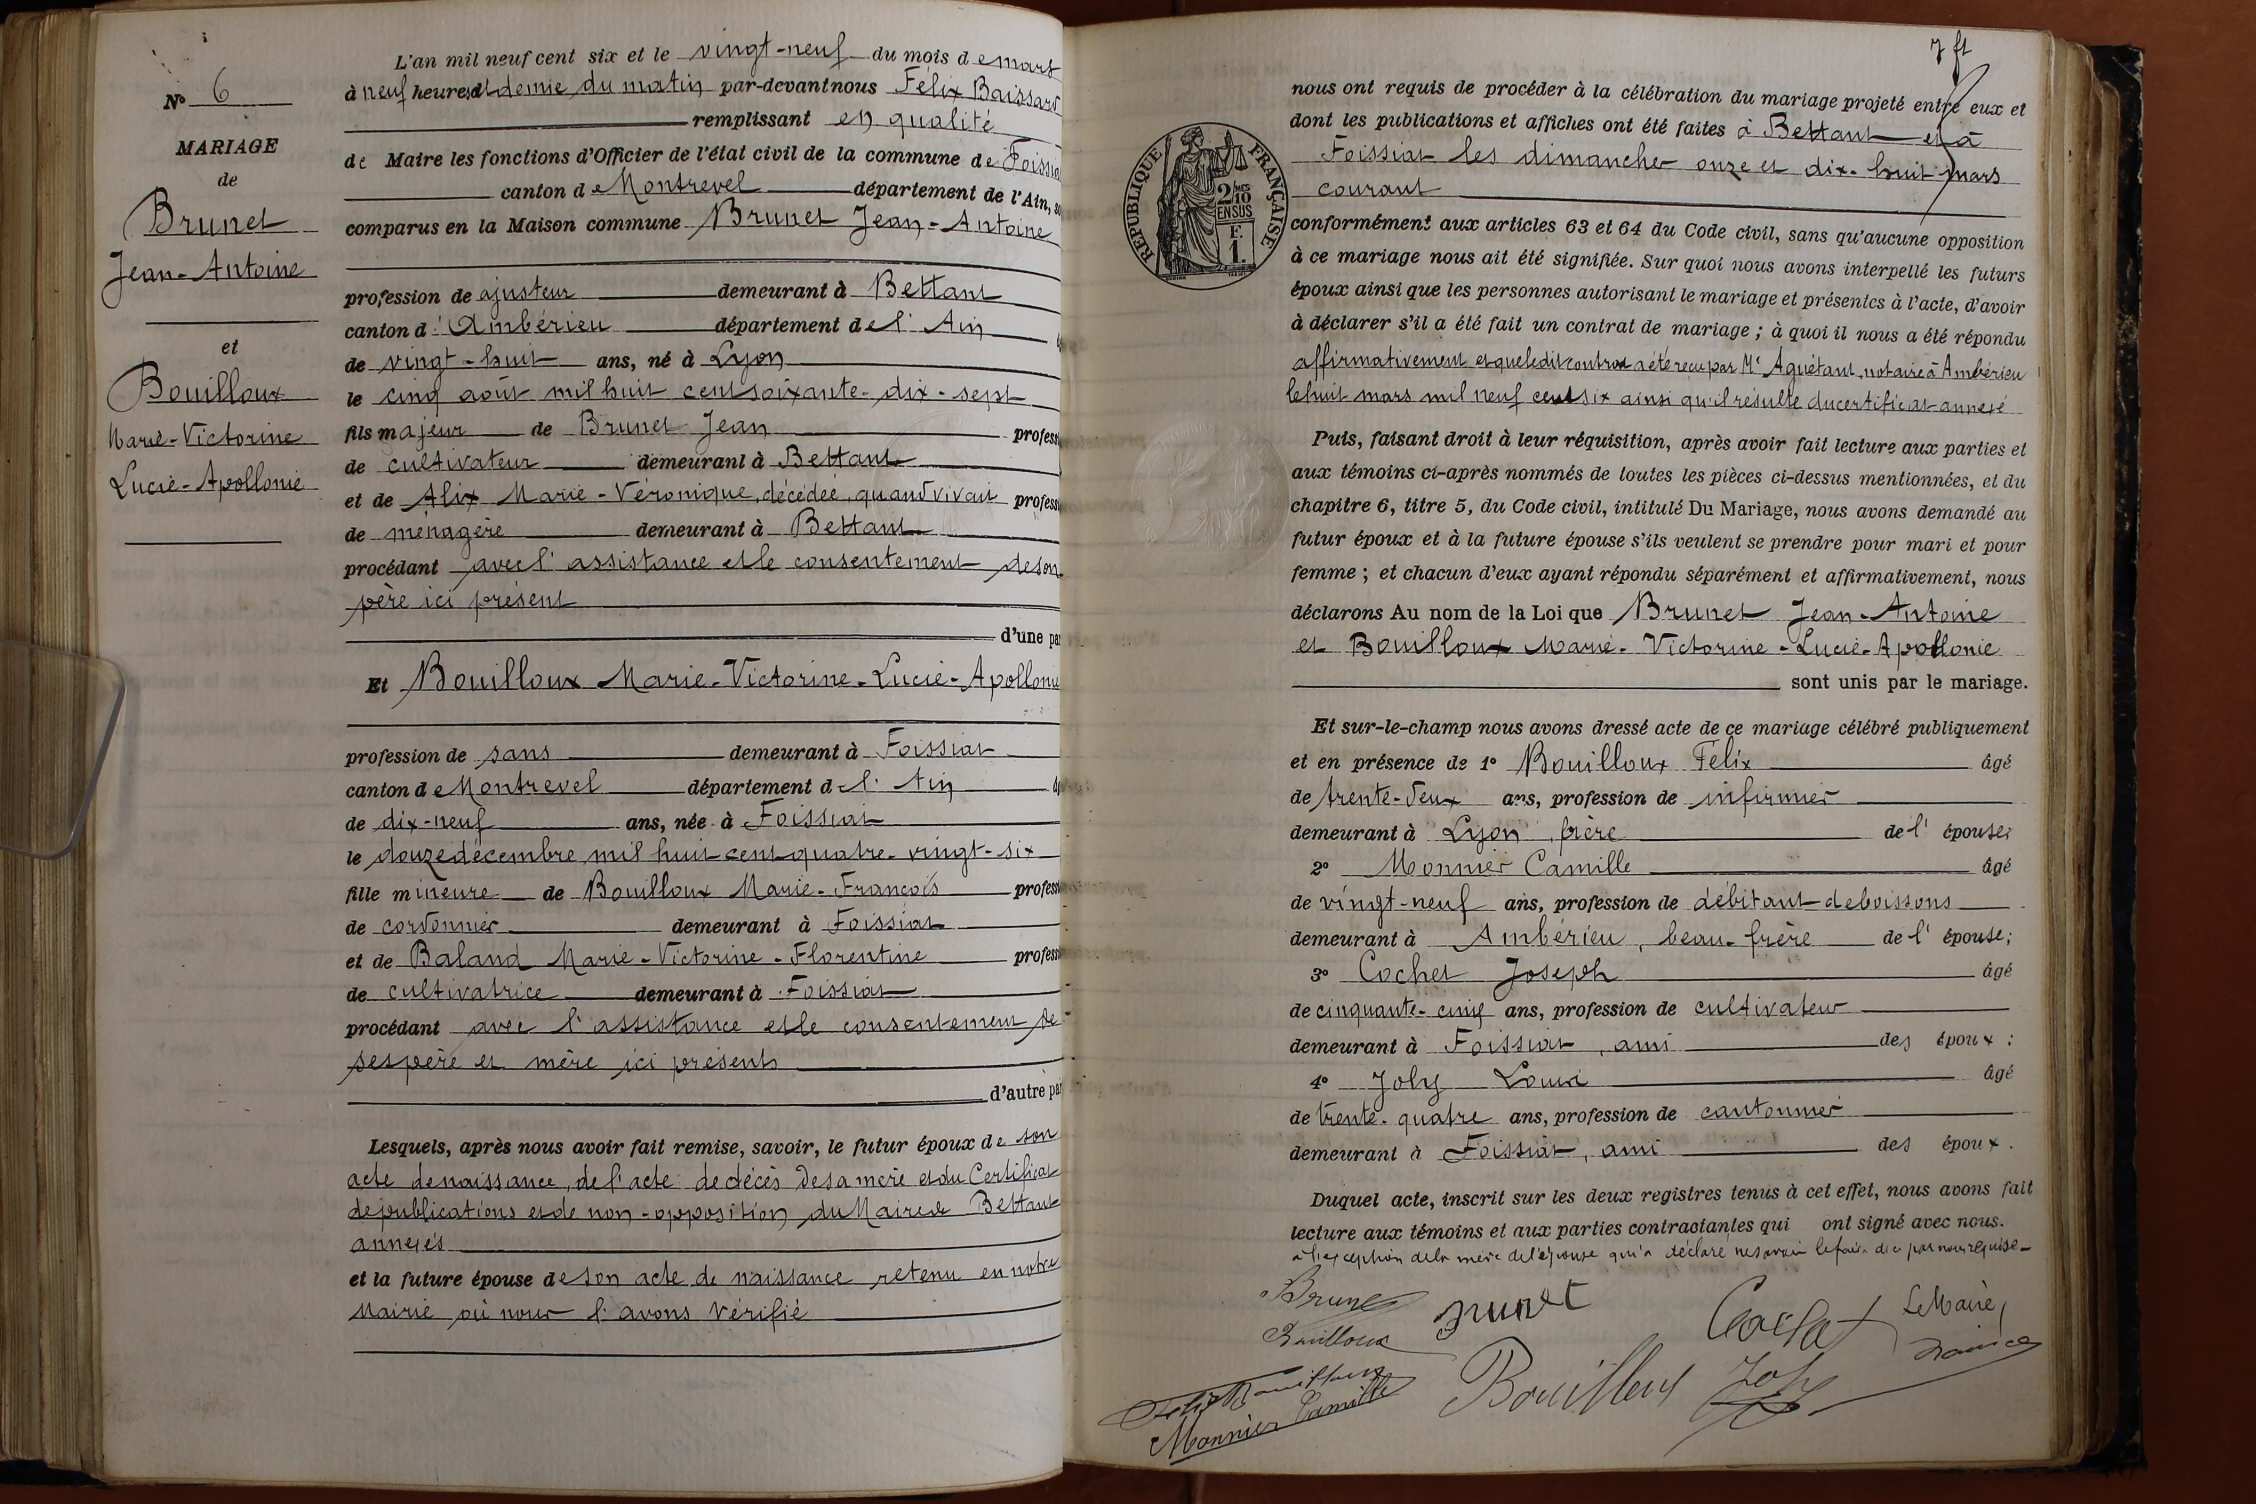 N° 6
MARIAGE
de
Brunet
Jean-Antoine
et
Bouilloux
Marie-Victorine
Lucie-Apollonie
L'an mil neuf cent six et le vingt-neuf du mois de mars
à neuf heures et demie du matin par-devant nous Félix Baissard
remplissant en qualité
de Maire les fonctions d'Officier de l'état civil de la commune de Foissia
canton de Montrevel département de l'Ain, so
comparus en la Maison commune Brunet Jean-Antoine
profession de ajusteur demeurant à Bettant
canton d'Ambérieu département de l'Ain
de vingt-huit ans, né à Lyon
le cinq août mil huit cent soixante-dix-sept
fils majeur de Brunet Jean profess
de cultivateur demeurant à Bettant
et de Alix Marie-Véronique, décédée, quand vivait profess
de ménagère demeurant à Bettant
procédant avec l'assistance et le consentement de son
père ici présent
d'une par
Et Bouilloux Marie-Victorine-Lucie-Apollonie
profession de sans demeurant à Foissiat
canton de Montrevel département de l'Ain âg
de dix-neuf ans, née à Foissiat
le douze décembre mil huit cent quatre-vingt-six
fille mineure de Bouilloux Marie-François profess
de cordonnier demeurant à Foissiat
et de Baland Marie-Victorine-Florentine profess
de cultivatrice demeurant à Foissiat
procédant avec l'assistance et le consentement de
ses père et mère ici présents
d'autre par
Lesquels, après nous avoir fait remise, savoir, le futur époux de son
acte de naissance, de l'acte de décès de sa mère et du Certificat
de publications et de non-opposition du Maire de Bettant
annexés
et la future épouse de son acte de naissance retenu en notre
Mairie où nous l'avons vérifié
7 ft
RÉPUBLIQUE FRANÇAISE
2/10
EN SUS
F.
1.
nous ont requis de procéder à la célébration du mariage projeté entre eux et
dont les publications et affiches ont été faites à Bettant et à
Foissiat les dimanches onze et dix-huit mars
courant
conformément aux articles 63 et 64 du Code civil, sans qu'aucune opposition
à ce mariage nous ait été signifiée. Sur quoi nous avons interpellé les futurs
époux ainsi que les personnes autorisant le mariage et présentes à l'acte, d'avoir
à déclarer s'il a été fait un contrat de mariage ; à quoi il nous a été répondu
affirmativement et que ledit contrat a été reçu par Me Aguétant, notaire à Ambérieu
le huit mars mil neuf cent six ainsi qu'il résulte du certificat annexé
Puis, faisant droit à leur réquisition, après avoir fait lecture aux parties et
aux témoins ci-après nommés de toutes les pièces ci-dessus mentionnées, et du
chapitre 6, titre 5, du Code civil, intitulé Du Mariage, nous avons demandé au
futur époux et à la future épouse s'ils veulent se prendre pour mari et pour
femme ; et chacun d'eux ayant répondu séparément et affirmativement, nous
déclarons Au nom de la Loi que Brunet Jean-Antoine
et Bouilloux Marie-Victorine-Lucie-Apollonie
sont unis par le mariage.
Et sur-le-champ nous avons dressé acte de ce mariage célébré publiquement
et en présence de 1° Bouilloux Félix âgé
de trente-deux ans, profession de infirmier
demeurant à Lyon, frère de l'épouse;
2° Monnier Camille âgé
de vingt-neuf ans, profession de débitant de boissons
demeurant à Ambérieu, beau-frère de l'épouse;
3° Cochet Joseph âgé
de cinquante-cinq ans, profession de cultivateur
demeurant à Foissiat, ami des époux :
4° Joly Louis âgé
de trente-quatre ans, profession de cantonnier
demeurant à Foissiat, ami des époux.
Duquel acte, inscrit sur les deux registres tenus à cet effet, nous avons fait
lecture aux témoins et aux parties contractantes qui ont signé avec nous.
à l'exception de la mère de l'épouse qui a déclaré ne savoir le faire de ce par nous requise
Brunet
Brunet
Cochet
Le Maire,
Bouilloux
Félix Bouilloux
Bouilloux
Joly
Monnier Camille